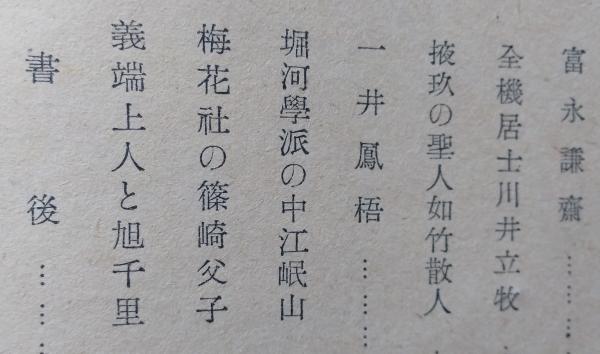 富永謙齋……
全機居士川井立牧
掖玖の聖人如竹散人
一井鳳梧……
堀河學派の中江岷山
梅花社の篠崎父子
義端上人と旭千里
書後……